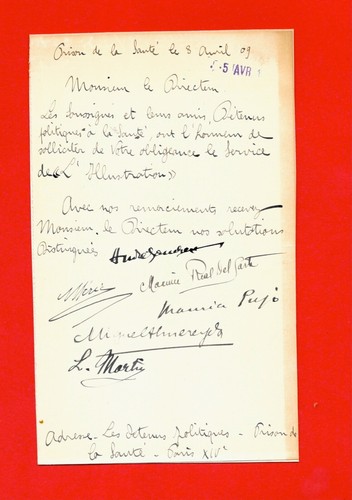 Prison de la Santé le 8 Avril 09
5 AVR
Monsieur le Directeur
Les soussignés et leurs amis, Détenus
politiques à la Santé ont l'honneur de
solliciter de votre obligeance le service
de « L'Illustration »
Avec nos remerciements recevez
Monsieur le Directeur nos salutations
distinguées
Maurice Réal del Sarte
Maurice Pujo
Miguel Almereyda
L. Martin
Adresse - Les détenus politiques - Prison de
la Santé - Paris XIVe